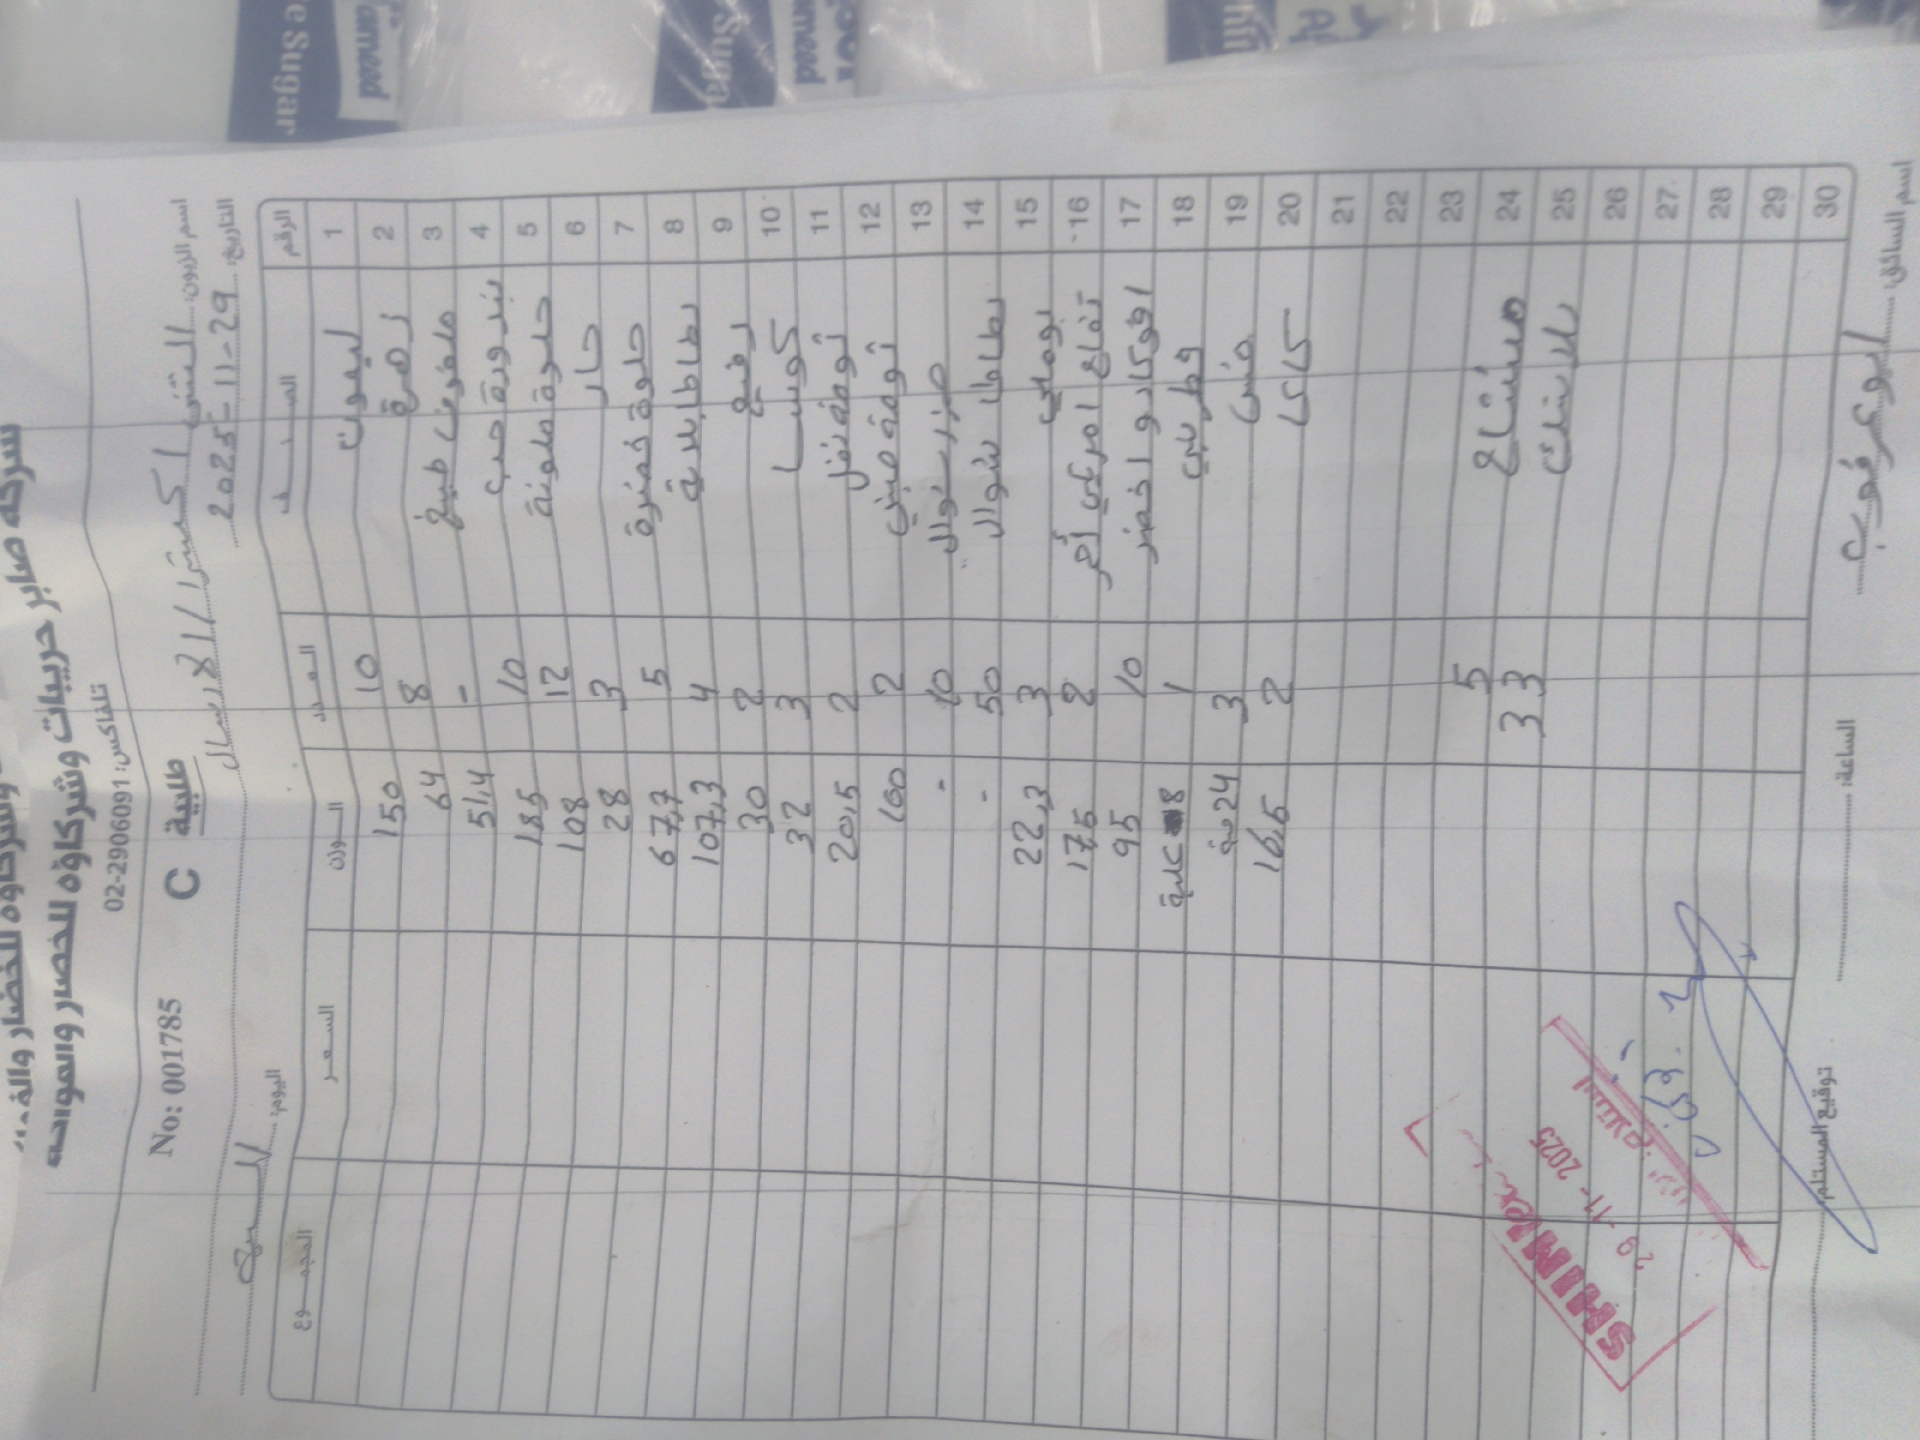 شركة صابر حريبات وشركاؤه للخضار والفواكه
تلفاكس: 02-2906091
No: 001785
C
طلبية
اسم الزبون: الشني اكسترا / الارسال
التاريخ: 29-11-2025
اليوم: السبت
الرقم الصنف العدد الوزن السعر المجموع
1 ليمون 10 150
2 زهرة 8 64
3 ملفوف طبيخ - 51,4
4 بندورة حب 10 185
5 حلوة ملونة 12 108
6 حار 3 28
7 حلوة خضرة 5 67,7
8 بطاطا بلدية 4 107,3
9 2 30
10 كوسا 3 32
11 ثومة نفل 2 20,5
12 ثومة صيني 2 100
13 جزر شوال 10 -
14 بطاطا شوال 50 -
15 بوملي 3 22,3
16 تفاح امركي أخر 2 17,5
17 افوكادو اخضر 10 95
18 فطر بني 1 8 علبة
19 خس 3 24
20 كاكا 2 16,5
21
22
23
24 مشتاح 5
25 بلاستك 33
26
27
28
29
30
اسم السائق: ابو عرقوب
الساعة:
توقيع المستلم:
SHINI extra
29-11-2025
استلام
e Sugar
Sugar